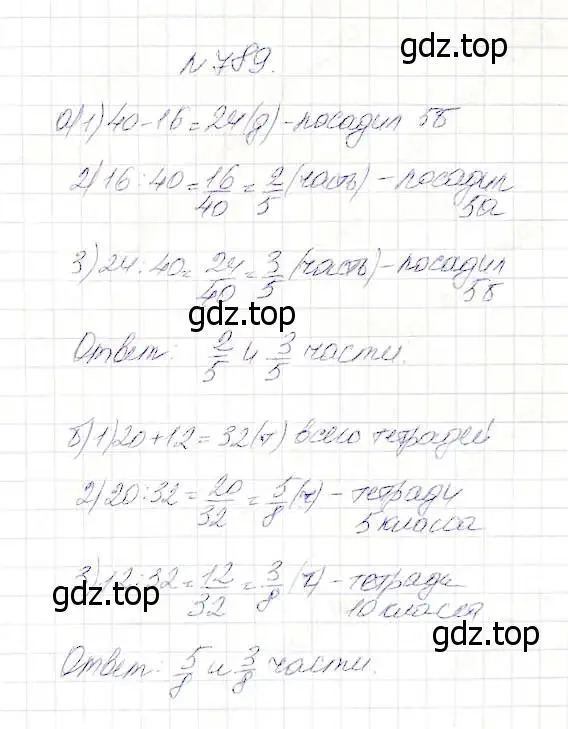 gdz.top
№ 789.
а) 1) 40 - 16 = 24 (д) - посадил 5б
2) 16 : 40 = 16/40 = 2/5 (часть) - посадил
5а
3) 24 : 40 = 24/40 = 3/5 (часть) - посадил
5б
gdz.top
Ответ: 2/5 и 3/5 части.
б) 1) 20 + 12 = 32 (т) всего тетрадей
2) 20 : 32 = 20/32 = 5/8 (т) - тетради
5 класса
3) 12 : 32 = 12/32 = 3/8 (т) - тетради
10 класса
gdz.top
gdz.top
Ответ: 5/8 и 3/8 части.